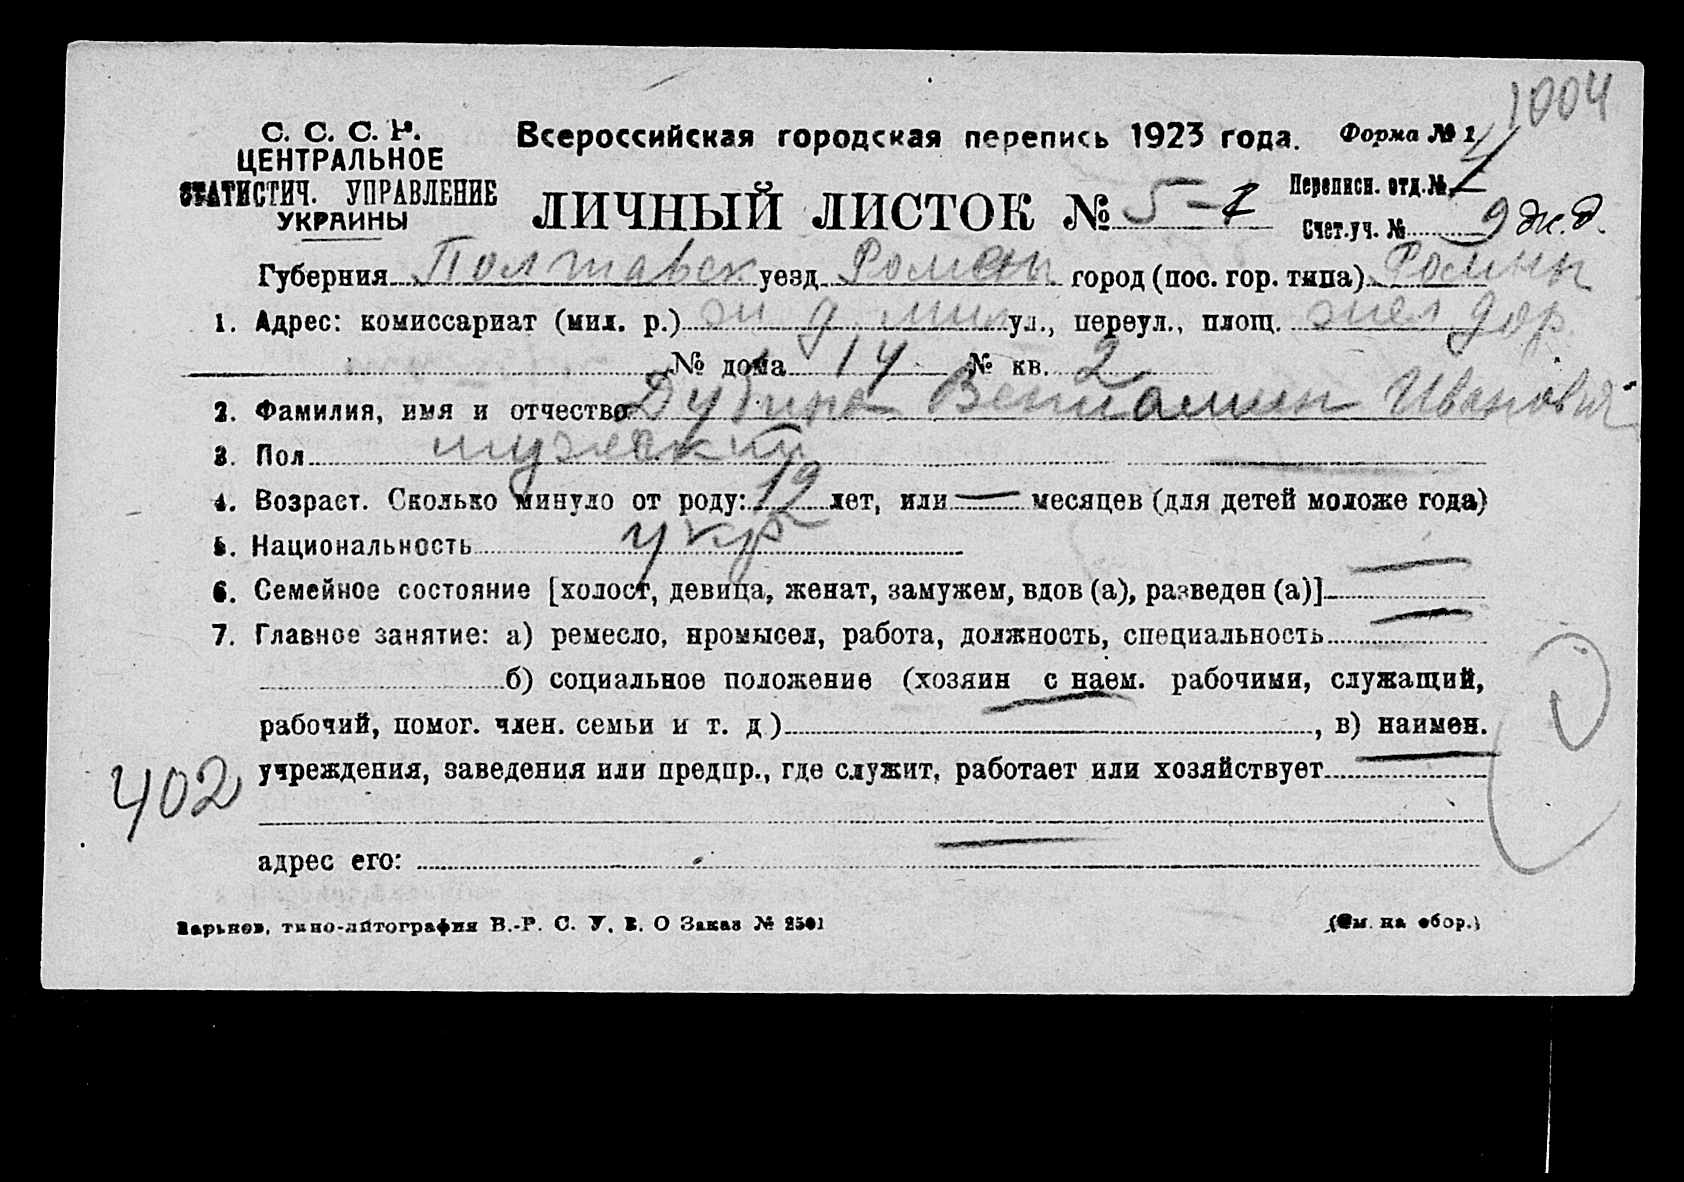 1004
С. С. С. Р.
ЦЕНТРАЛЬНОЕ
СТАТИСТИЧ. УПРАВЛЕНИЕ
УКРАИНЫ
Всероссийская городская перепись 1923 года. Форма № 1
ЛИЧНЫЙ ЛИСТОК № 5-1
Переписн. отд. №
Счет.уч. № 9 ж.д.
Губерния Полтавск уезд Ромены город (пос. гор. типа) Ромны
1. Адрес: комиссариат (мил. р.) ж д мил ул., переул., площ. жел дор.
№ дома 14 № кв. 2
2. Фамилия, имя и отчество Дубина Вениамин Иванович
3. Пол мужеский
4. Возраст. Сколько минуло от роду: 12 лет, или — месяцев (для детей моложе года)
5. Национальность укр
6. Семейное состояние [холост, девица, женат, замужем, вдов (а), разведен (а)] —
7. Главное занятие: а) ремесло, промысел, работа, должность, специальность —
б) социальное положение (хозяин с наем. рабочими, служащий,
рабочий, помог. член. семьи и т. д) —, в) наимен.
402
учреждения, заведения или предпр., где служит, работает или хозяйствует —
адрес его: —
Харьков, типо-литография В.-Р. С. У. В. О Заказ № 2501
(См. на обор.)